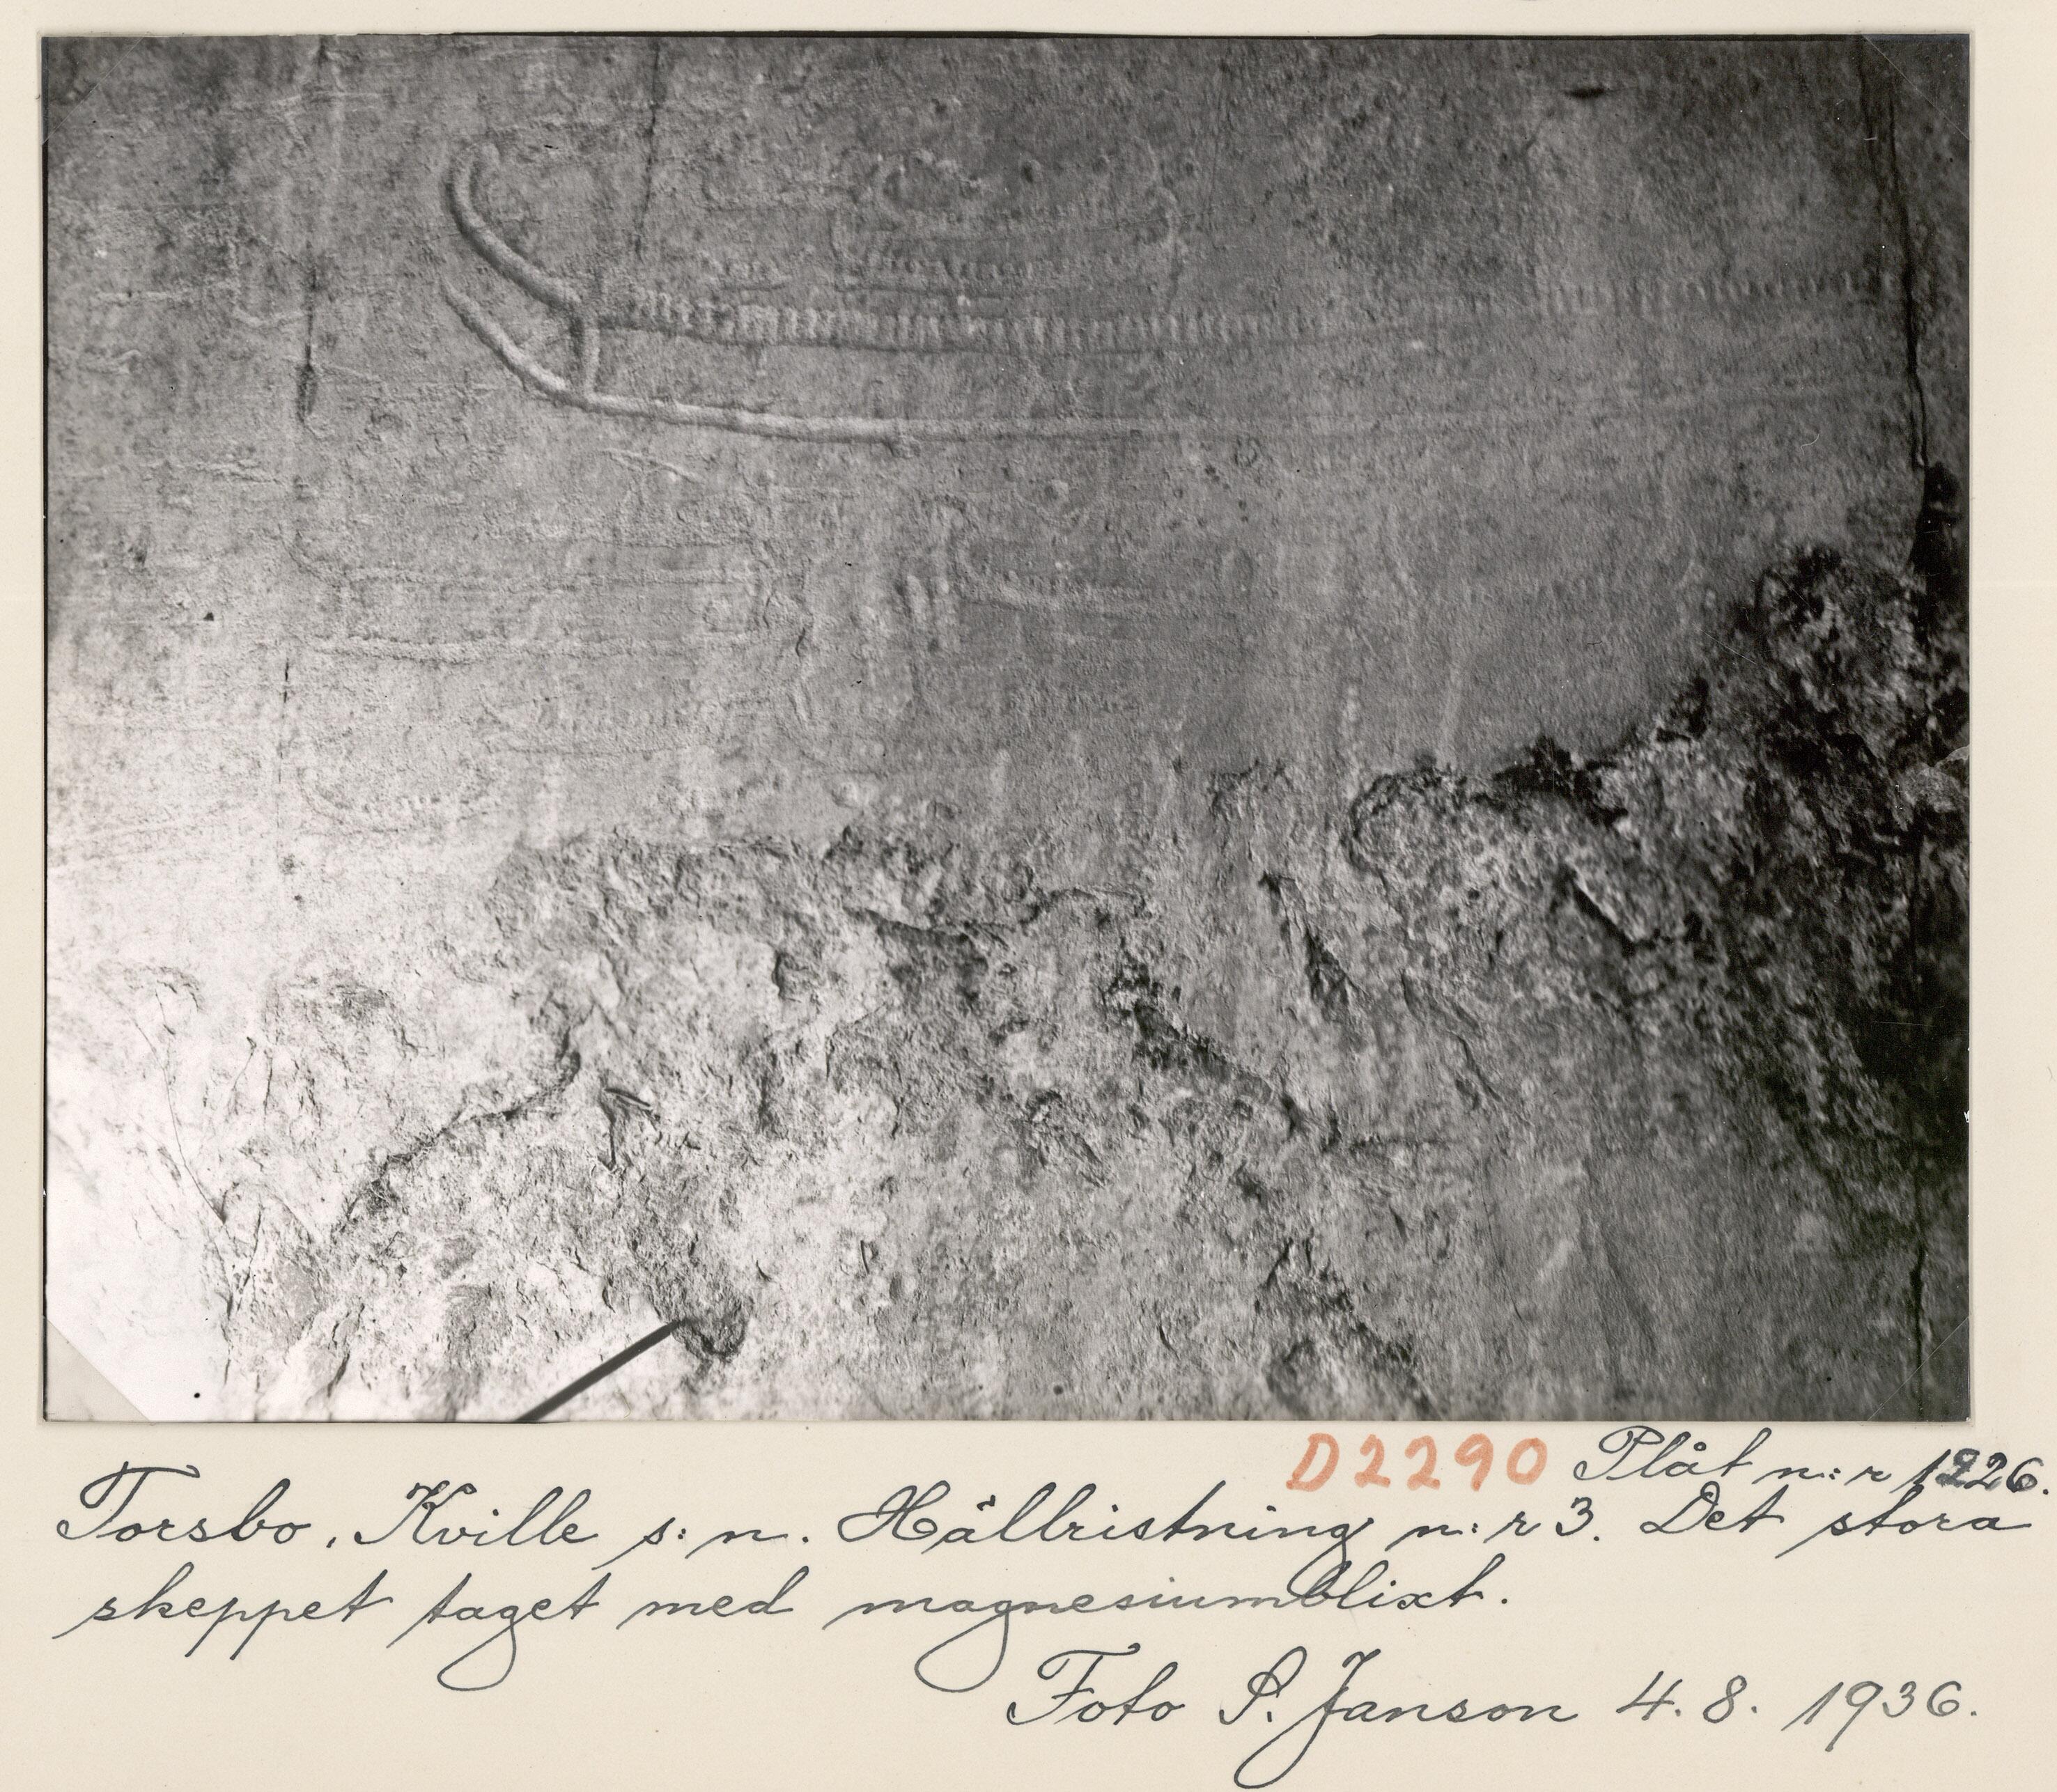 D2290 Plåt n:r 1226.
Torsbo, Kville s:n. Hällristning n:r 3. Det stora
skeppet taget med magnesiumblixt.
Foto S. Janson 4.8.1936.